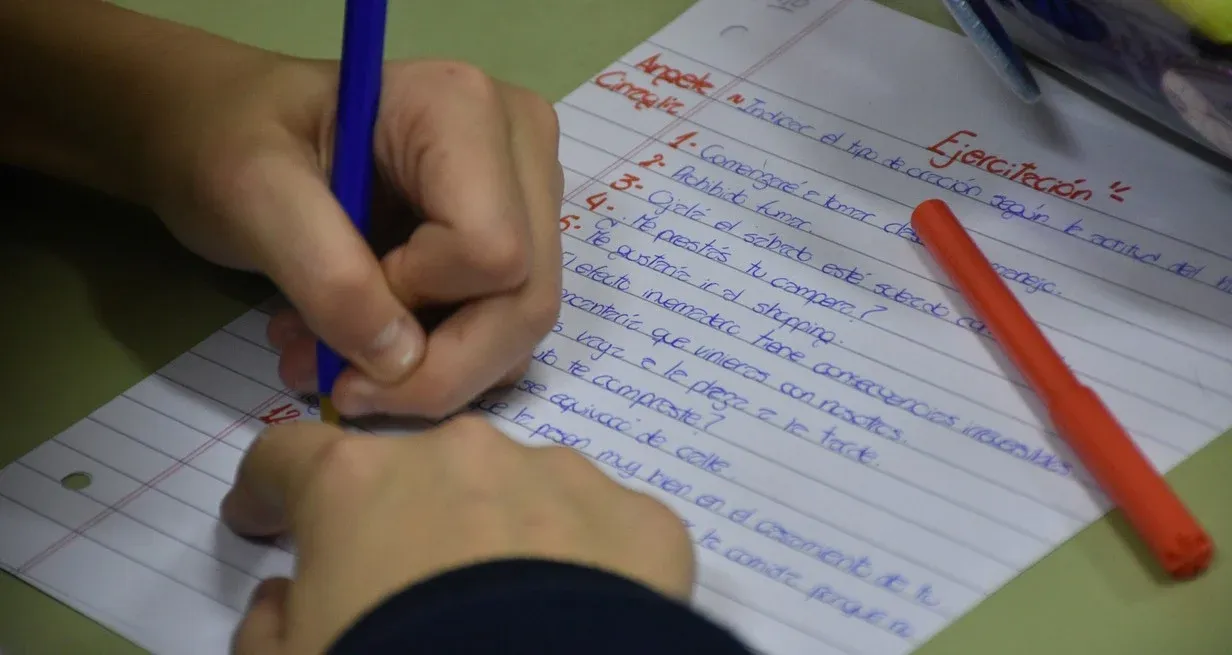 Angele
Cinzaliz
"Ejercitación"
~ Indicar el tipo de oración según la actitud del
1- Comenzaré a tomar
2- Prohibido fumar.
3- Ojalá el sábado esté soleado
4- ¿Me prestás tu campera?
5- Me gustaría ir al shopping.
El efecto invernadero tiene consecuencias irreversibles
que vinieras con nosotros.
vaya a la plaza a la tarde.
te compraste?
se equivocó de calle.
la pasen muy bien en el casamiento de tu
la comida porque
12